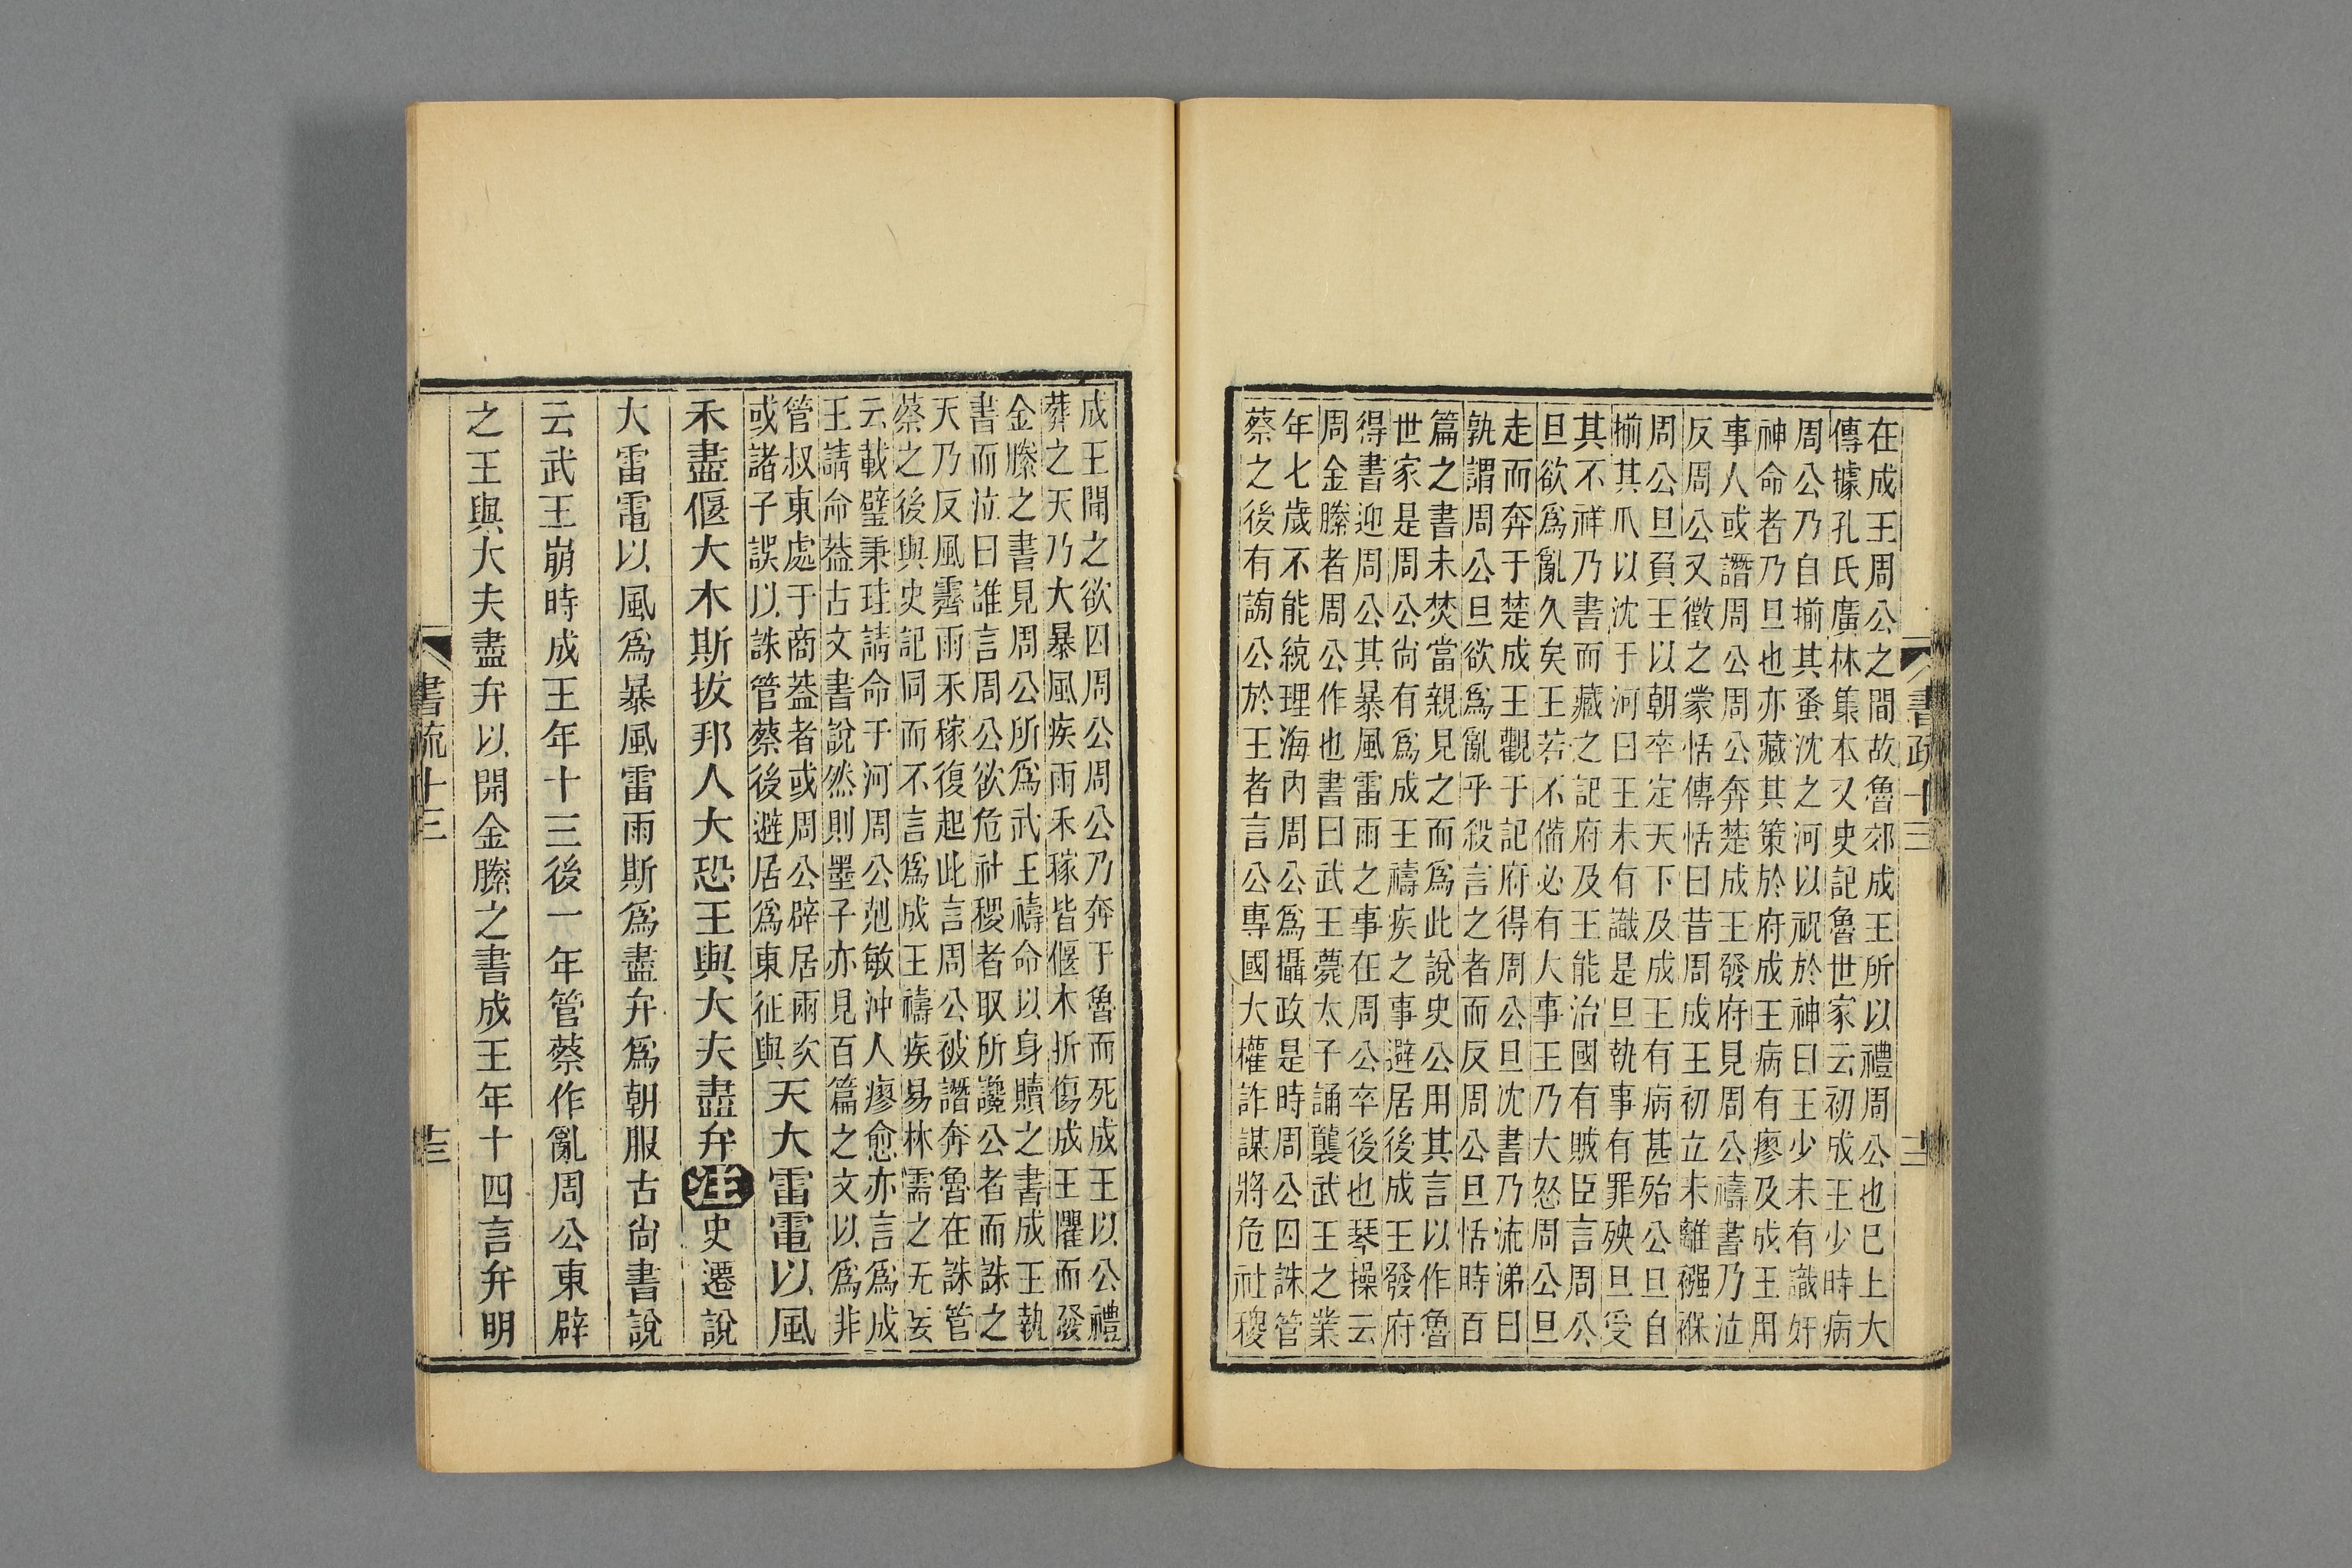 書疏十三
在成王周公之間故魯郊成王所以禮周公也已上大
傳據孔氏廣林集本又史記魯世家云初成王少時病
周公乃自揃其蚤沈之河以祝於神曰王少未有識奸
神命者乃旦也亦藏其策於府成王病有廖及成王用
事人或譖周公周公奔楚成王發府見周公禱書乃泣
反周公又徵之蒙恬傳恬曰昔周成王初立未離襁褓
周公旦負王以朝卒定天下及成王有病甚殆公旦自
揃其爪以沈于河曰王未有識是旦執事有罪殃旦受
其不祥乃書而藏之記府及王能治國有賊臣言周公
旦欲爲亂久矣王若不備必有大事王乃大怒周公旦
走而奔于楚成王觀于記府得周公旦沈書乃流涕曰
孰謂周公旦欲爲亂乎殺言之者而反周公旦恬時百
篇之書未焚當親見之而爲此說史公用其言以作魯
世家是周公尙有爲成王禱疾之事避居後成王發府
得書迎周公其暴風雷雨之事在周公卒後也琴操云
周金縢者周公作也書曰武王薨太子誦襲武王之業
年七歲不能統理海內周公爲攝政是時周公囚誅管
蔡之後有謗公於王者言公專國大權詐謀將危社稷
成王聞之欲囚周公周公乃奔于魯而死成王以公禮
葬之天乃大暴風疾雨禾稼皆偃木折傷成王懼而發
金縢之書見周公所爲武王禱命以身贖之書成王執
書而泣曰誰言周公欲危社稷者取所讒公者而誅之
天乃反風霽雨禾稼復起此言周公被譖奔魯在誅管
蔡之後與史記同而不言爲成王禱疾易林需之无妄
云載璧秉珪請命于河周公剋敏沖人瘳愈亦言爲成
王請命葢古文書說然則墨子亦見百篇之文以爲非
管叔東處于商葢者或周公辟居兩次
或諸子誤以誅管蔡後避居爲東征與
天大雷電以風
禾盡偃大木斯拔邦人大恐王與大夫盡弁注史遷說
大雷電以風爲暴風雷雨斯爲盡弁爲朝服古尙書說
云武王崩時成王年十三後一年管蔡作亂周公東辟
之王與大夫盡弁以開金縢之書成王年十四言弁明
書疏十三